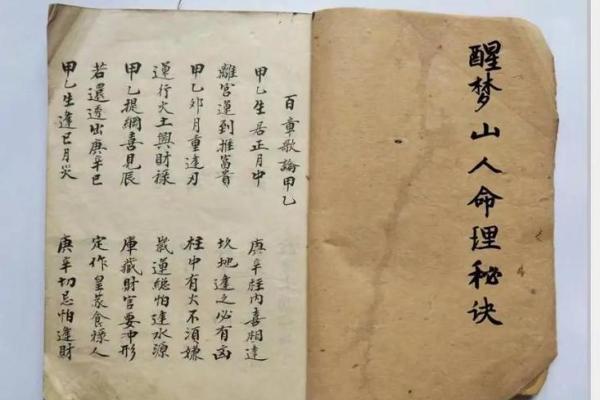 醒梦山人命理秘诀
百章歌論甲乙
甲乙生居正月中 庚辛柱內喜相逢
離宮運到推富貴 坎地逢之必有凶
甲乙卯月重逢刃 柱中有火不須嫌
運行火土興財祿 歲運總怕逢水源
甲乙提綱喜見辰 庫藏財官要冲形
若還透出庚辛巳 定作皇家食祿人
甲乙生逢巳月火 庚辛切忌怕逢財